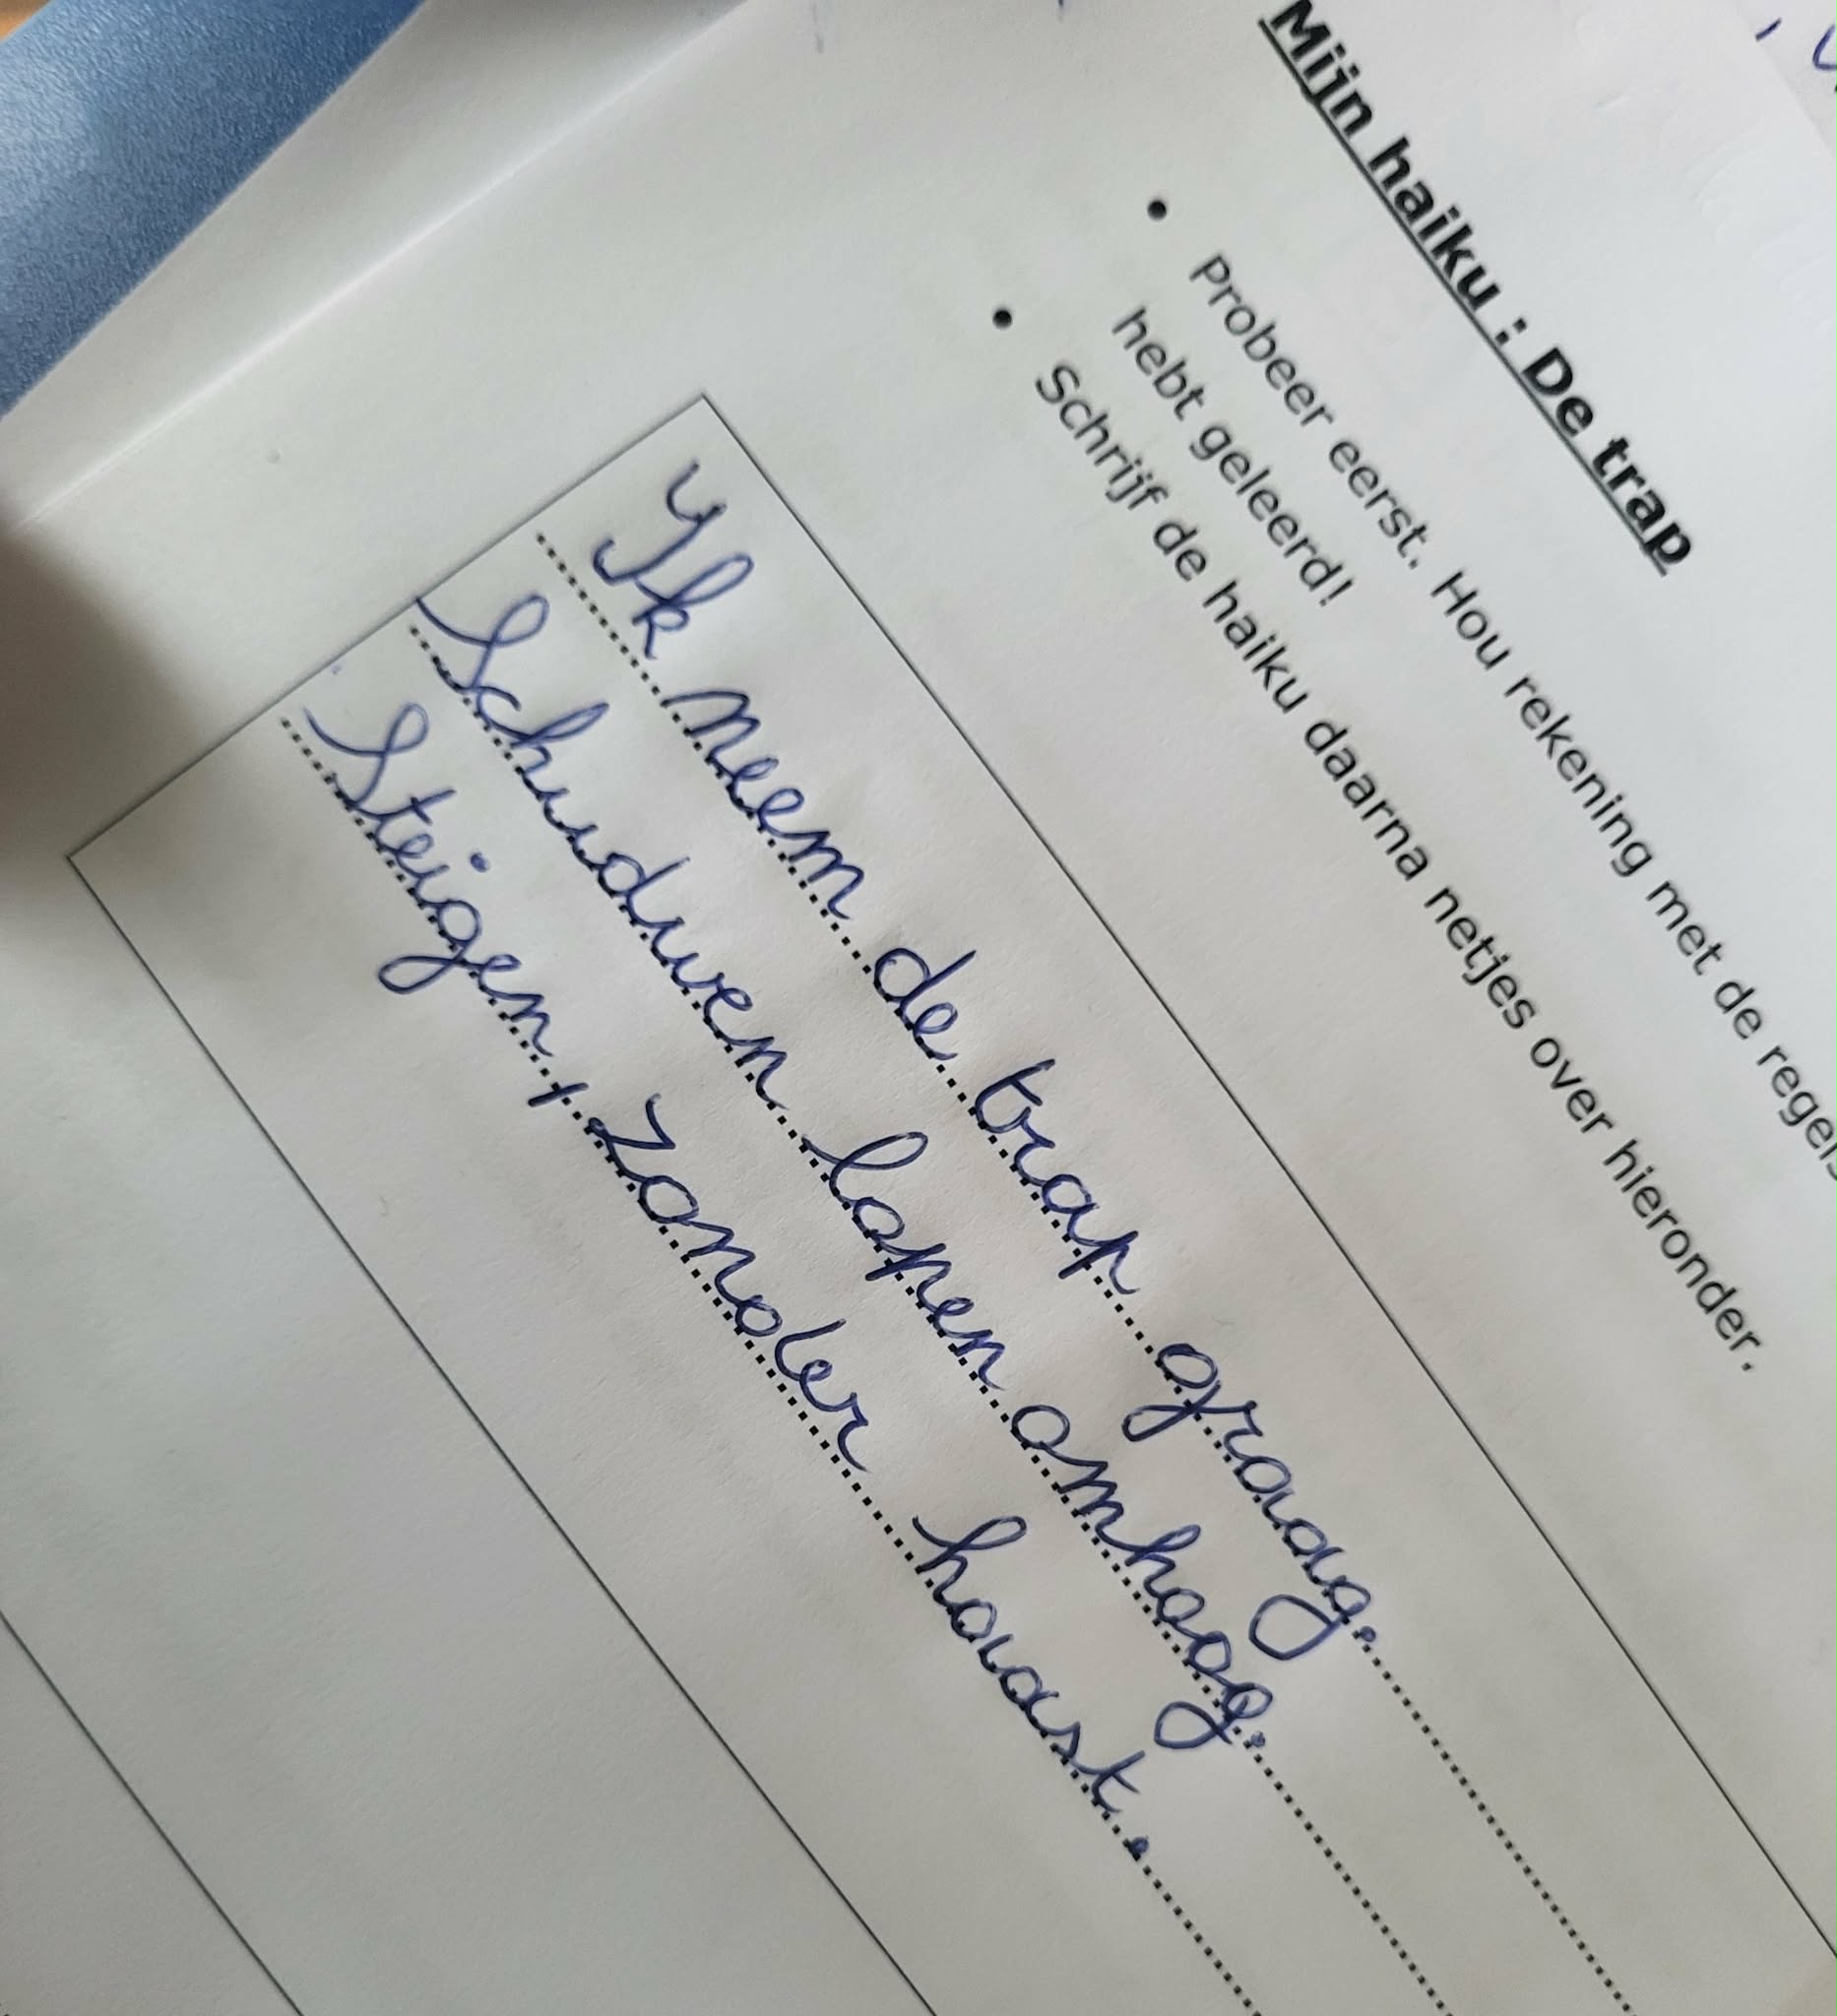 Mijn haiku : De trap
• Probeer eerst. Hou rekening met de regels
hebt geleerd!
• Schrijf de haiku daarna netjes over hieronder.
Ik neem de trap graag.
Schuduwen lopen omhoog.
Steigen, zonder haast.